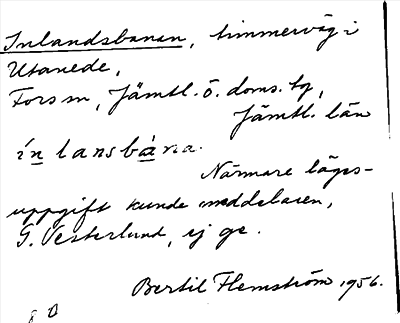 Inlandsbanan, timmerväg i
Utanede,
Fors sn, Jämtl. ö. doms. tg,
Jämtl. län
ínlansbàna.
Närmare läges-
uppgift kunde meddelaren,
G. Vesterlund, ej ge.
Bertil Flemström 1956.